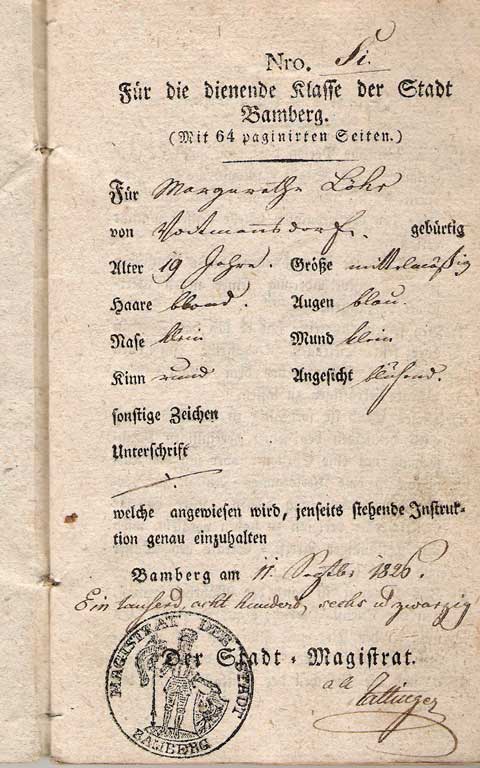 Nro. 51.
Für die dienende Klasse der Stadt
Bamberg.
(Mit 64 paginirten Seiten.)
Für Margarethe Löhr
von Voitmannsdorf. gebürtig
Alter 19 Jahre. Größe mittelmäßig
Haare blond. Augen blau.
Nase klein Mund klein
Kinn rund Angesicht blühend.
sonstige Zeichen
Unterschrift
welche angewiesen wird, jenseits stehende Instruk-
tion genau einzuhalten
Bamberg am 11. Septbr 1826.
Ein tausend, acht hundert, sechs u. zwanzig
Der Stadt-Magistrat.
MAGISTRAT DER STADT
BAMBERG